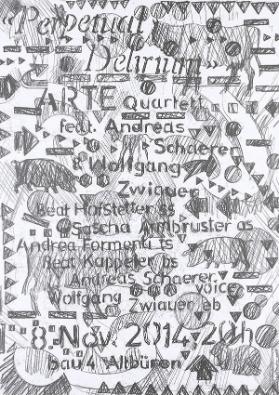 "Perpetual
Delirium"
ARTE Quartett
feat. Andreas
Schaerer
& Wolfgang
Zwiauer
Beat Hofstetter ss
Sascha Armbruster as
Andrea Formenti ts
Beat Kappeler bs
Andreas Schaerer voice
Wolfgang Zwiauer eb
8. Nov. 2014, 20h
bau 4 Altbüron